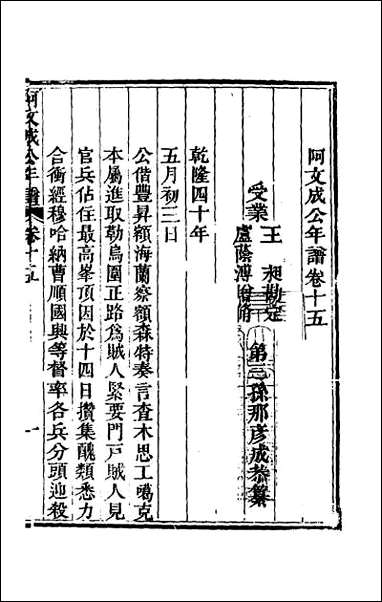 阿文成公年譜卷十五
第三孫那彥成恭纂
受業王昶勘定
盧蔭溥增脩
乾隆四十年
五月初三日
公偕豐昇額海蘭察額森特奏言查木思工噶克
本屬進取勒烏圍正路為賊人緊要門戶賊人見
官兵佔住最高峯頂因於十四日攢集醜類悉力
合衝經穆哈納曹順國興等督率各兵分頭迎殺
阿文成公年譜 卷十五 一